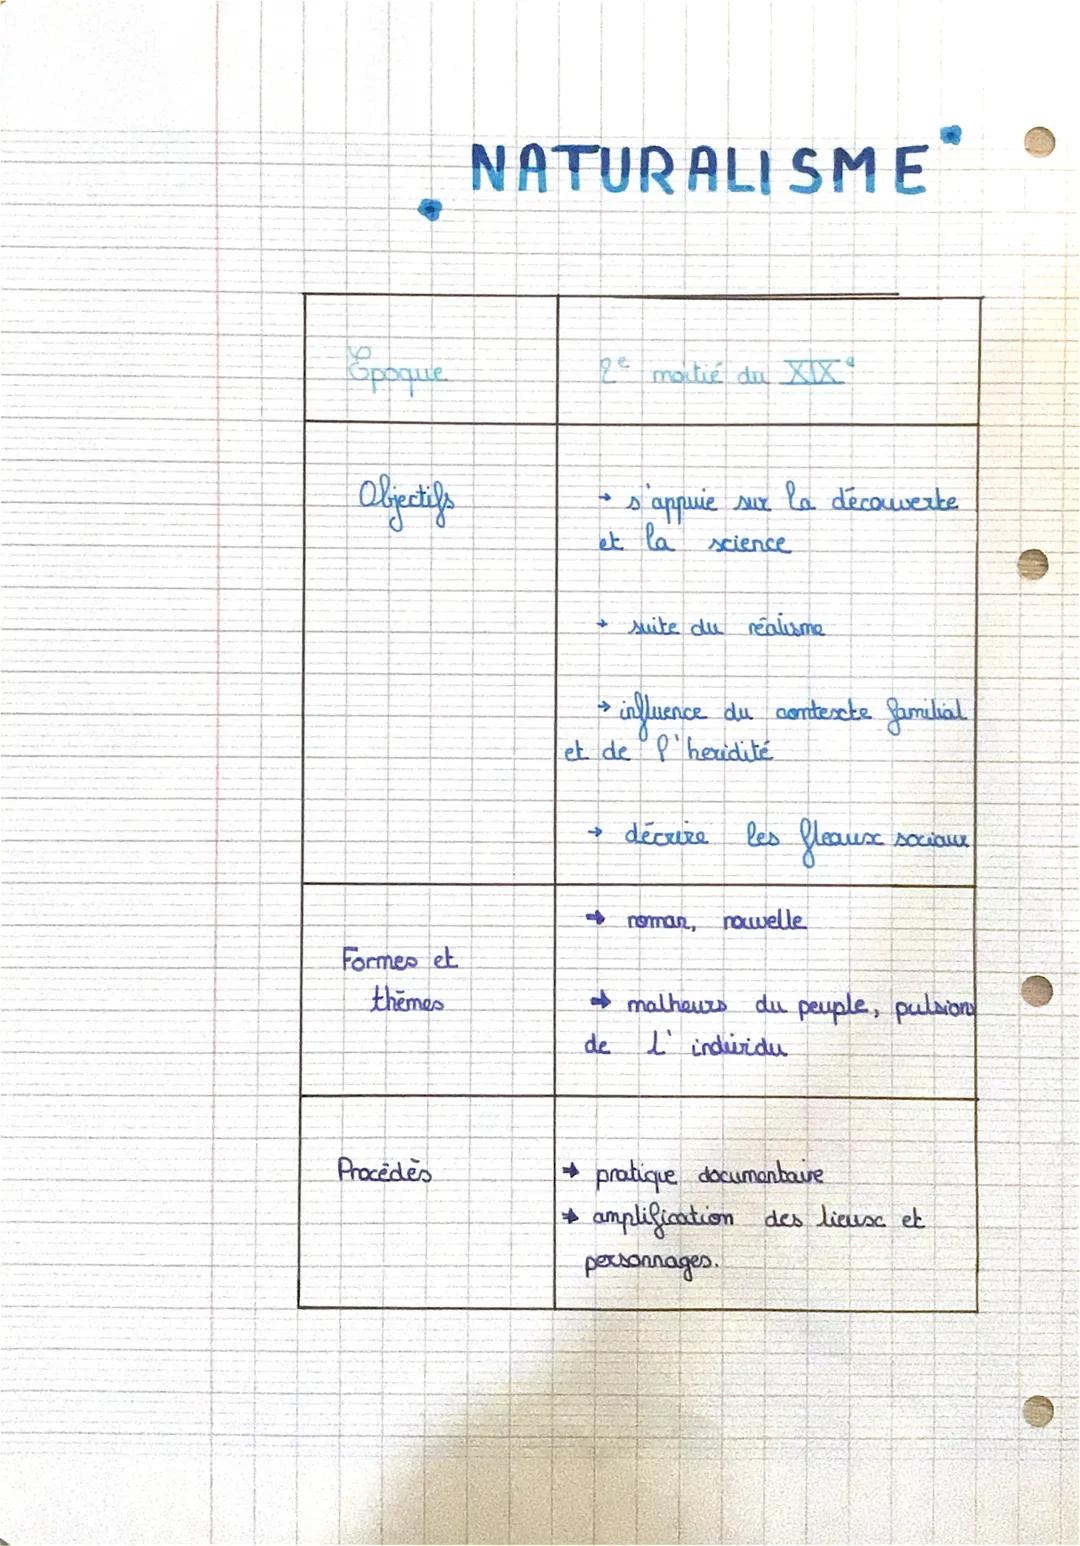 NATURALISME
Époque
2e moitié du XIXe
Objectifs
→ s'appuie sur la découverte
et la science
→ suite du réalisme
→ influence du contexte familial
et de l'heridité
→ décrire les fleaux sociaux
→ roman, nouvelle
Formes et
thèmes
→ malheurs du peuple, pulsions
de l'individu
Procédès
→ pratique documentaire
→ amplification des lieux et
personnages.